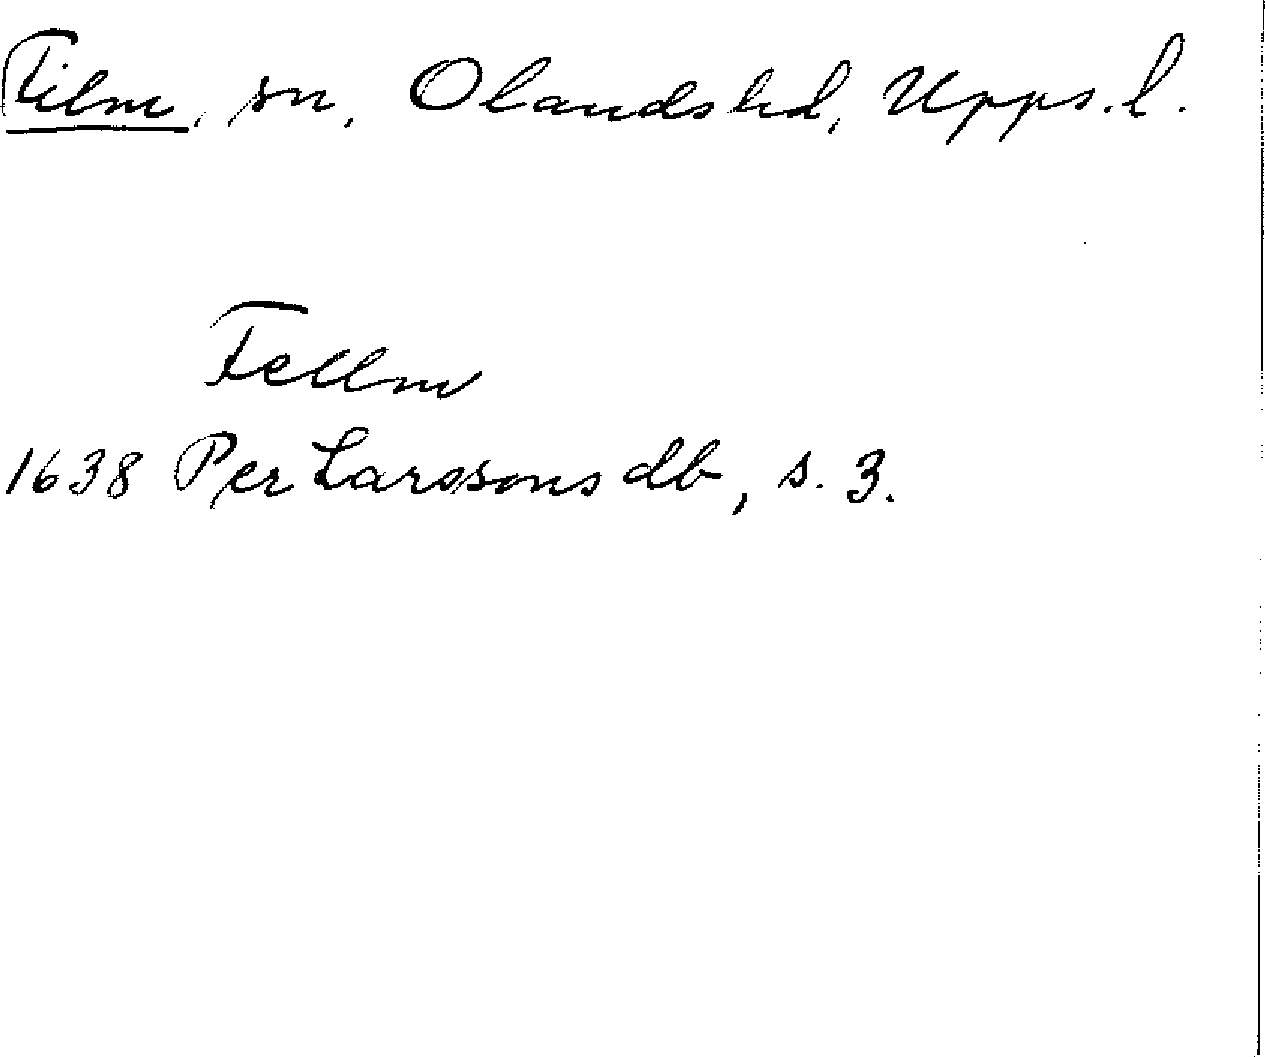 Film, sn, Olands hd, Upps. l.
Fellm
1638 Per Larssons db, s. 3.